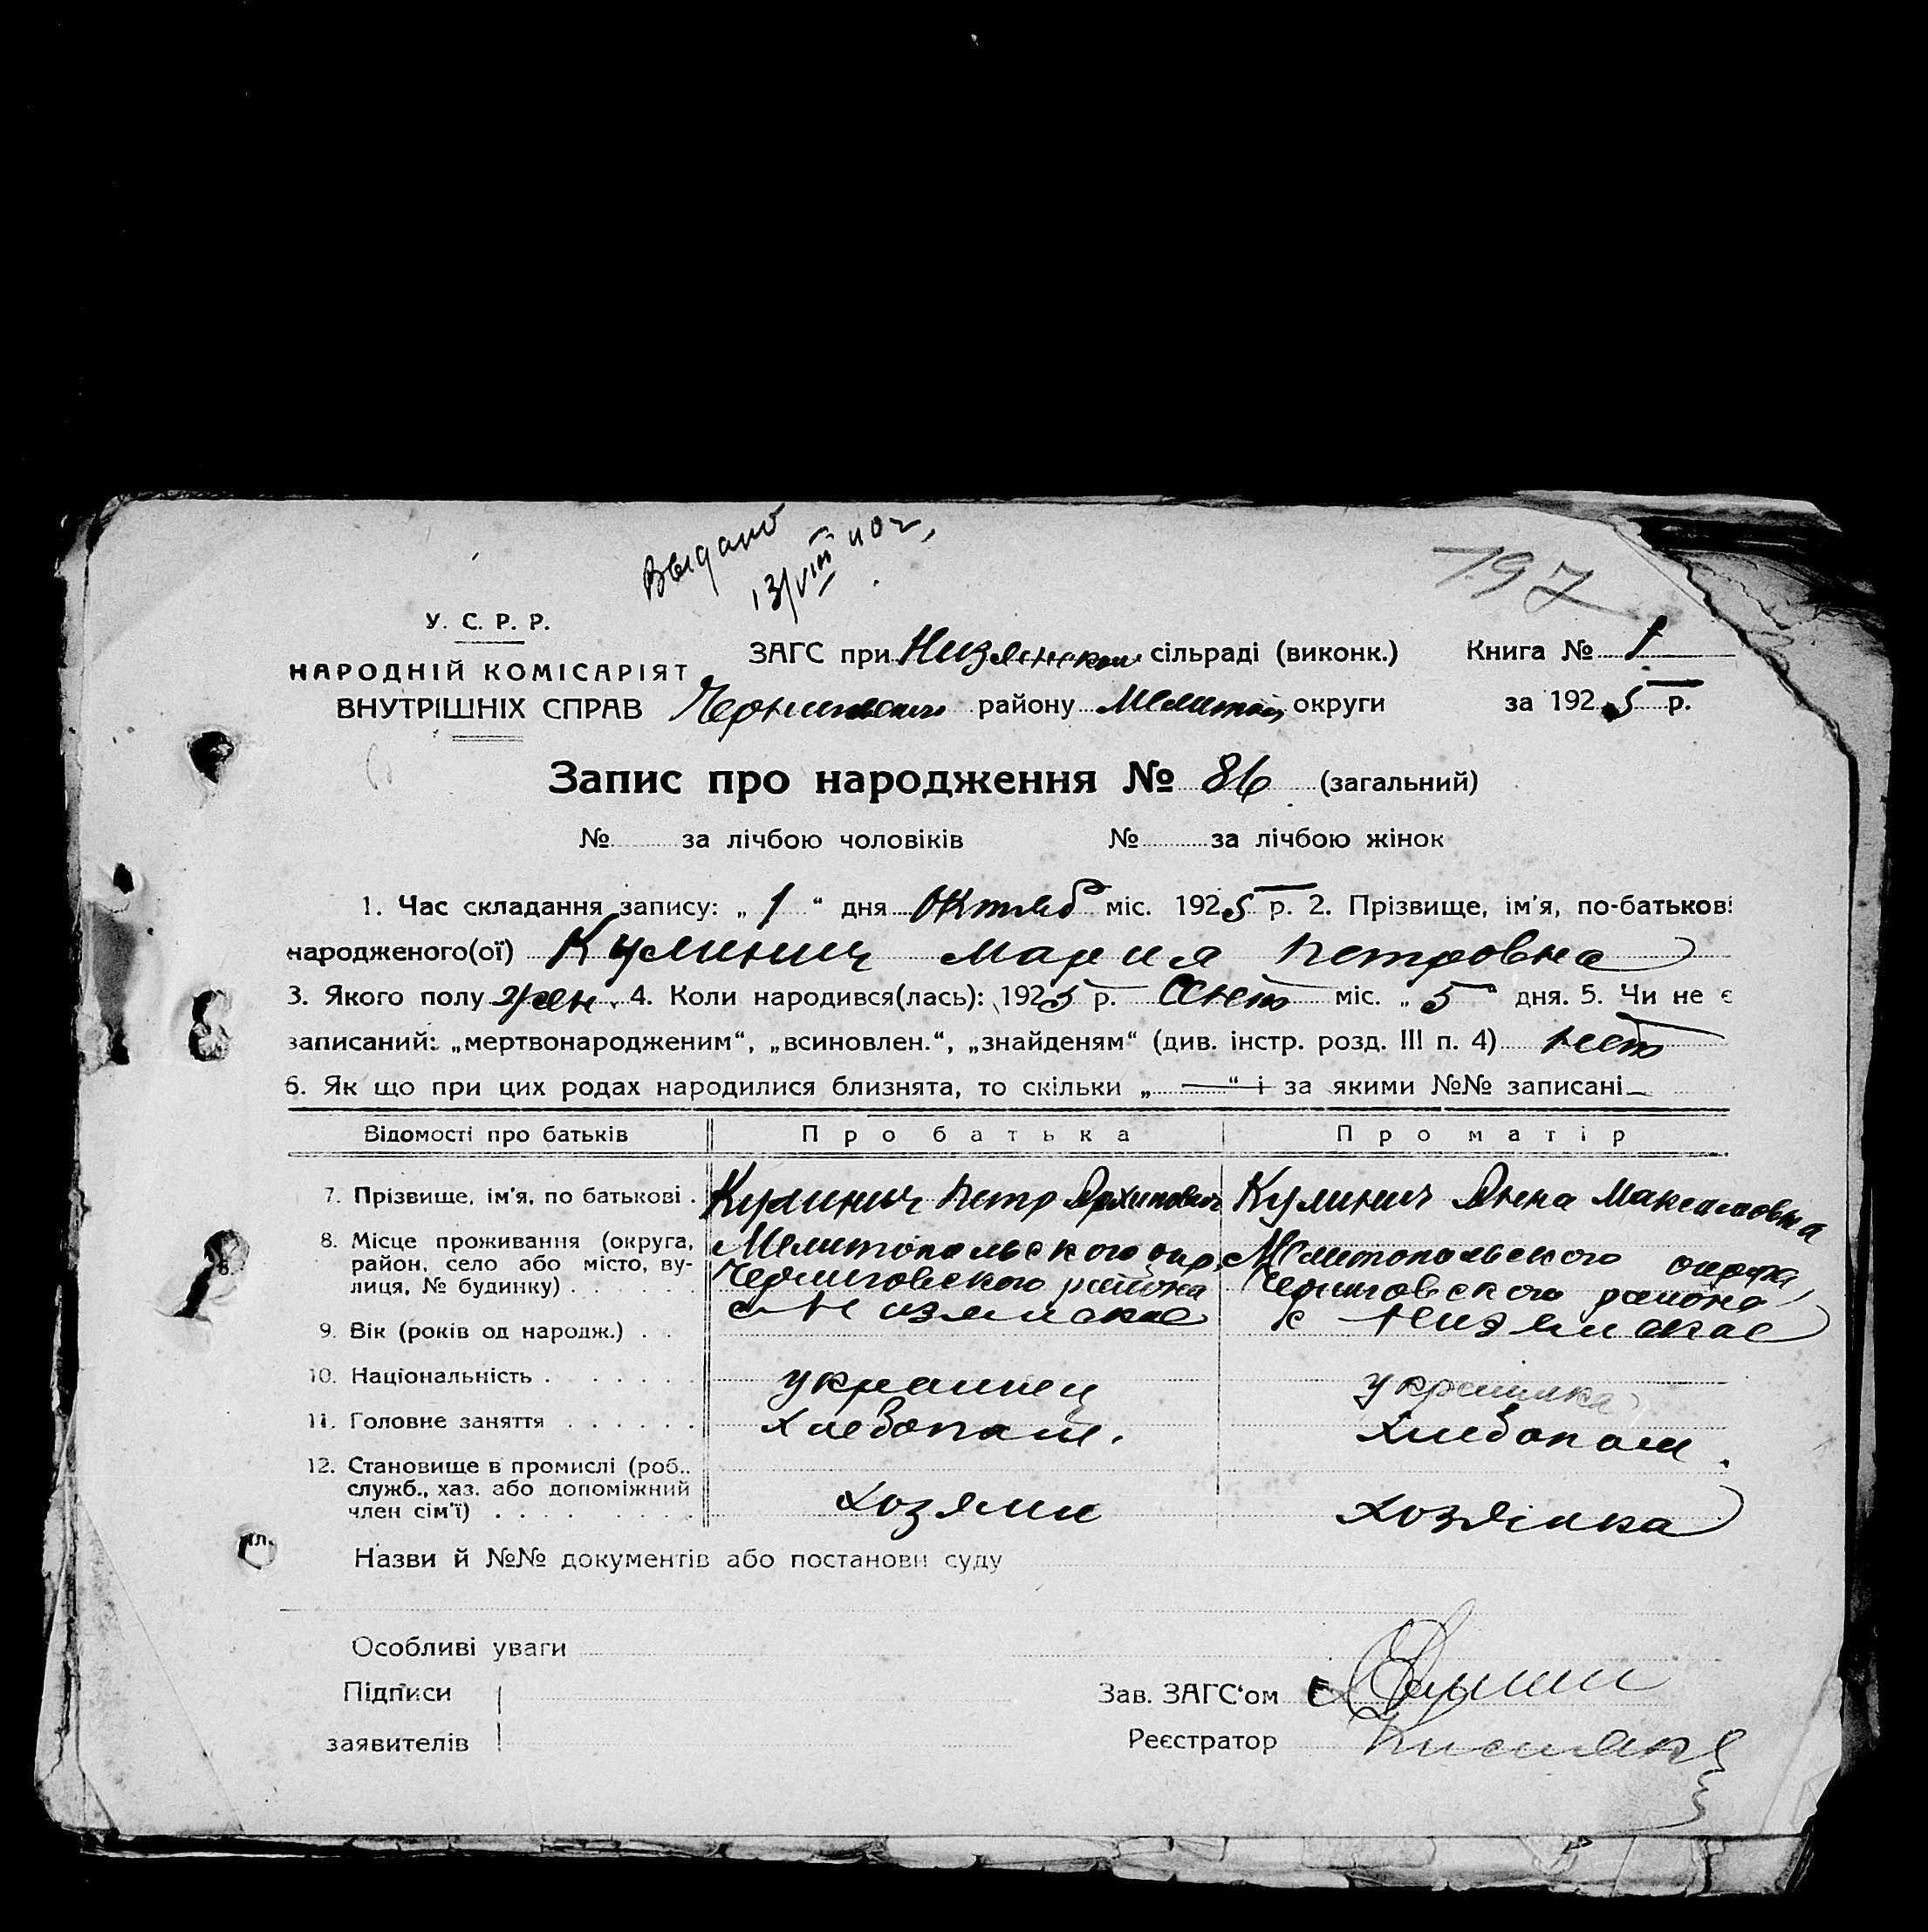 Выдано
13/VIII 40 г.
197
У. С. Р. Р.
НАРОДНІЙ КОМІСАРІЯТ
ВНУТРІШНІХ СПРАВ
ЗАГС при Низянской сільраді (виконк.) Книга № 1
району Мелитоп округи за 1925 р.
Запис про народження № 86 (загальний)
№ за лічбою чоловіків № за лічбою жінок
1. Час складання запису: „ 1 “ дня Октяб міс. 1925 р. 2. Прізвище, ім'я, по-батькові
народженого(ої) Кулинич Мария Петровна
3. Якого полу жен. 4. Коли народився(лась): 1925 р. Сент міс. „ 5 “ дня. 5. Чи не є
записаний: „мертвонародженим“, „всиновлен.“, „знайденям“ (див. інстр. розд. III п. 4) нет
6. Як що при цих родах народилися близнята, то скільки „ — “ і за якими №№ записані —
Відомості про батьків Про батька Про матір
7. Прізвище, ім'я, по батькові . Кулинич Петр Архипович Кулинич Анна Максимовна
8. Місце проживання (округа, район, село або місто, вулиця, № будинку) . . . . . .
Мелитопольского окр. Мелитопольского округа
Черниговского района Черниговского района
с Низянское с Низянское
9. Вік (років од народж.) . .
10. Національність . . . . . . . украинец украинка
11. Головне заняття . . . . . . хлебопаш. хлебопаш.
12. Становище в промислі (роб.,
служб., хаз. або допоміжний
член сім'ї) . . . . . . . . хозяин хозяйка
Назви й №№ документів або постанови суду
Особливі уваги
Підписи
заявителів
Зав. ЗАГС‘ом
Реєстратор